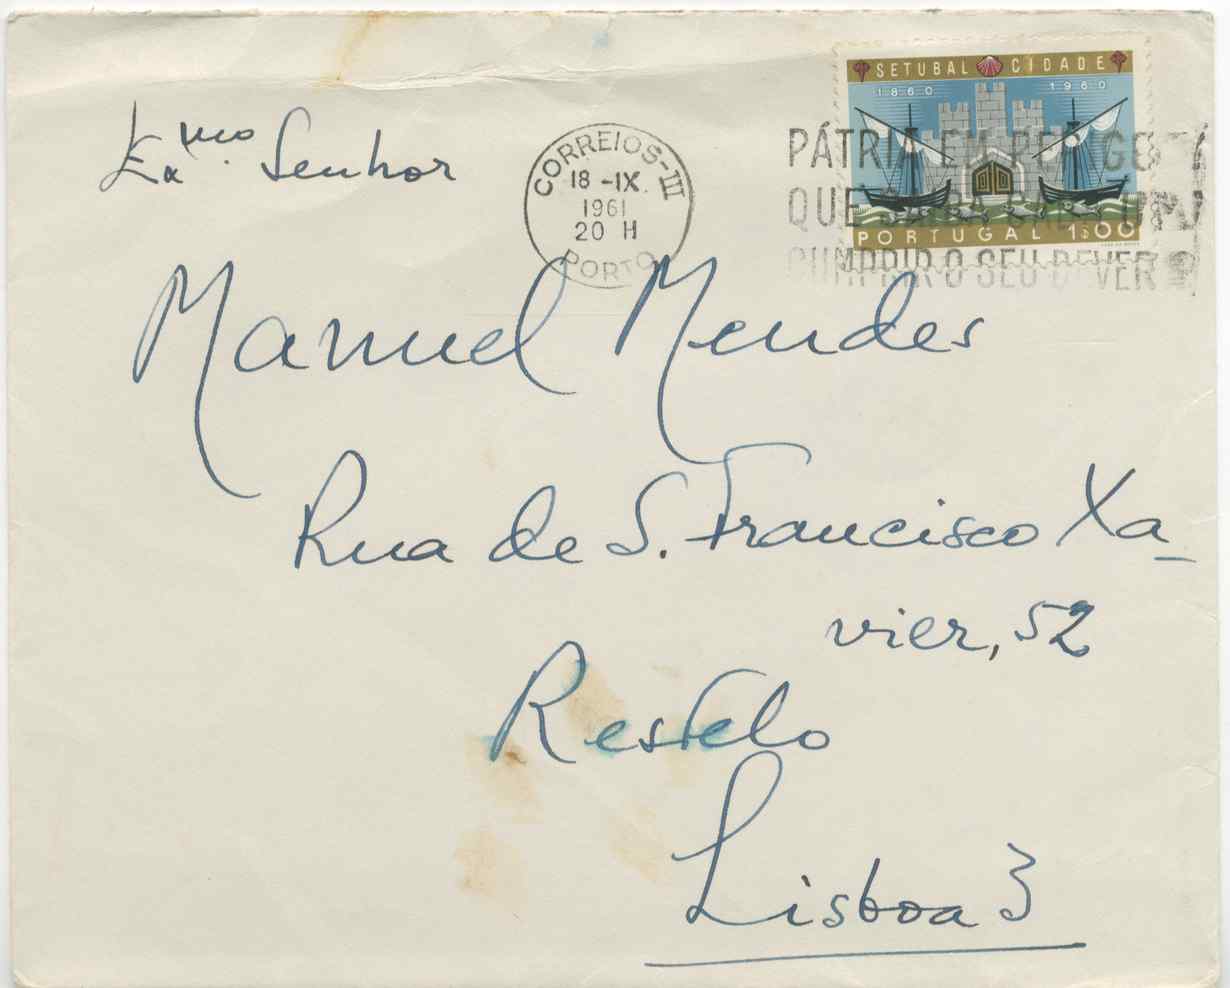 SETUBAL CIDADE
1860 1960
PORTUGAL 1$00
CORREIOS-III
18 -IX.
1961
20 H
PORTO
PÁTRIA EM PERIGO
QUE SAIBA CADA UM
CUMPRIR O SEU DEVER
Exmo. Senhor
Manuel Mendes
Rua de S. Francisco Xa-
vier, 52
Restelo
Lisboa 3